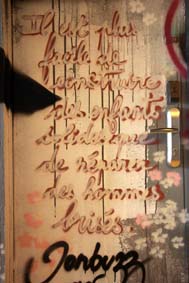 Il est plus
facile de
construire
des enfants
solides que
de réparer
des hommes
brisés.
Jonbuzz